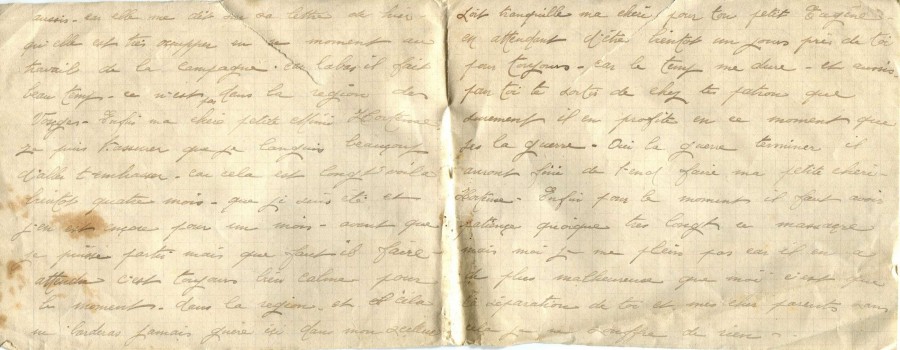 aussi - car elle me dit sur sa lettre de hier -
qu'elle est très occupper en ce moment au
travail de la campagne. car labas il fait
beau temp - ce n'est pas dans la region des
Vosges - Enfin ma chère petite Hortense
je puis t'assurer que je languis beaucoup
d'aller t'embrasser - car cela est longt voila
bientot quatre mois - que je
j'en est pour un mois - avant que
je puisse partir mais que faut il faire -
attendre c'est toujours très calme pour
le moment - dans la region - et
ne tarderas jamais guère dans mon
Soit tranquille ma chéri pour ton petit Eugène -
en attendant d'être bientot un jours près de toi
pour toujours - car le temp me dure - et
pour toi te sortes de chez tes patron que
surement il en profite en ce moment que
les la guerre - Oui la guerre terminer il
auront fini de t'en faire ma petite chéri -
Hortense - Enfin pour le moment il faut avoir
patiance quoique très longt ce massacre
mais moi je me plein pas car il en a
de plus malheureuse que moi c'est que
la séparation de toi et mes cher parents sans
cela je ne souffre de rien -